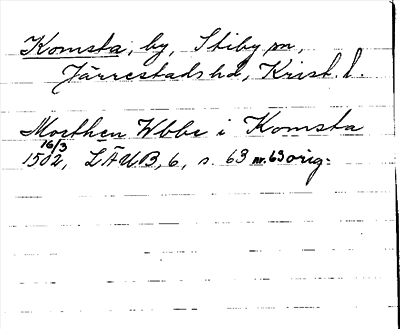 Komsta, by, Stiby sn,
Järrestads hd, Krist. l.
Morthen Vbbe i Komsta
16/3
1502, LÄUB, 6, s. 63 nr. 63 orig.